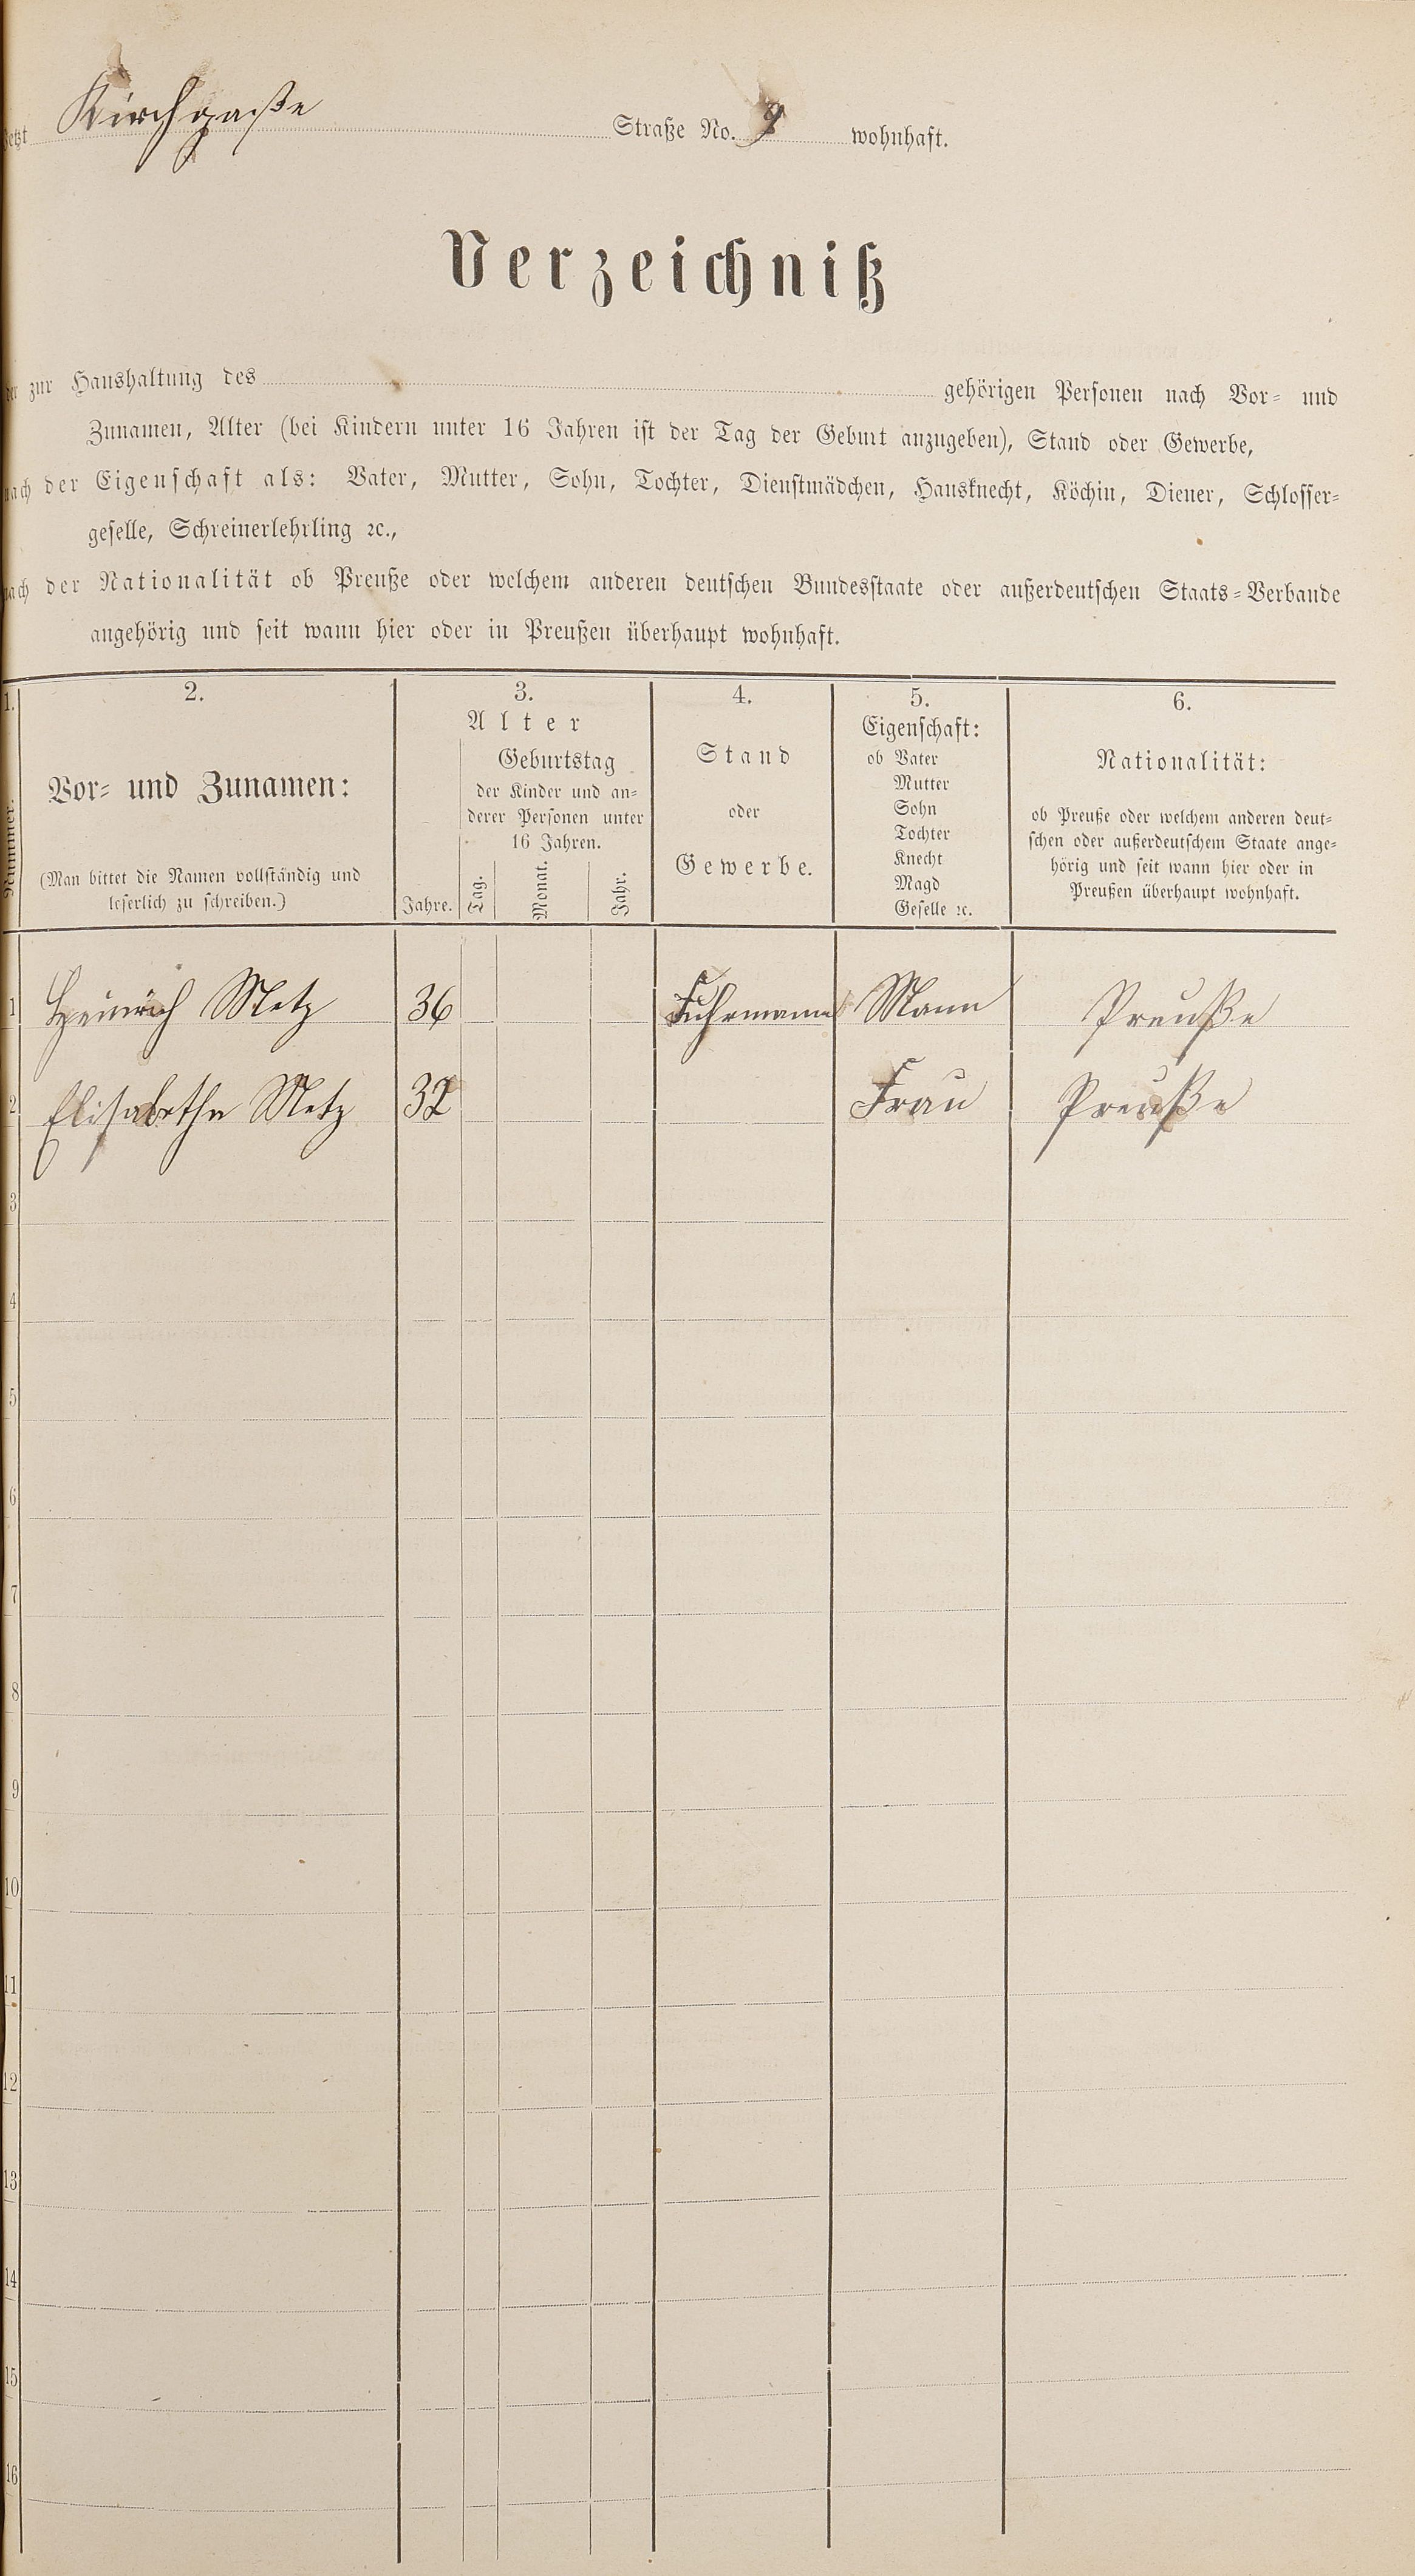 Jetzt Kirchgaße Straße No. 9 wohnhaft.
Verzeichniß
der zur Haushaltung des gehörigen Personen nach Vor- und
Zunamen, Alter (bei Kindern unter 16 Jahren ist der Tag der Geburt anzugeben), Stand oder Gewerbe,
nach der Eigenschaft als: Vater, Mutter, Sohn, Tochter, Dienstmädchen, Hausknecht, Köchin, Diener, Schlosser-
geselle, Schreinerlehrling ꝛc.,
nach der Nationalität ob Preuße oder welchem anderen deutschen Bundesstaate oder außerdeutschen Staats-Verbande
angehörig und seit wann hier oder in Preußen überhaupt wohnhaft.
1. 2. 3. 4. 5. 6.
Nummer.
Vor- und Zunamen:
(Man bittet die Namen vollständig und
leserlich zu schreiben.)
Alter
Jahre.
Geburtstag
der Kinder und an-
derer Personen unter
16 Jahren.
Tag. Monat. Jahr.
Stand
oder
Gewerbe.
Eigenschaft:
ob Vater
Mutter
Sohn
Tochter
Knecht
Magd
Geselle ꝛc.
Nationalität:
ob Preuße oder welchem anderen deut-
schen oder außerdeutschem Staate ange-
hörig und seit wann hier oder in
Preußen überhaupt wohnhaft.
1 Heinrich Metz 36 Fuhrmann Mann Preuße
2 Elisabethe Metz 32 Frau Preuße
3
4
5
6
7
8
9
10
11
12
13
14
15
16